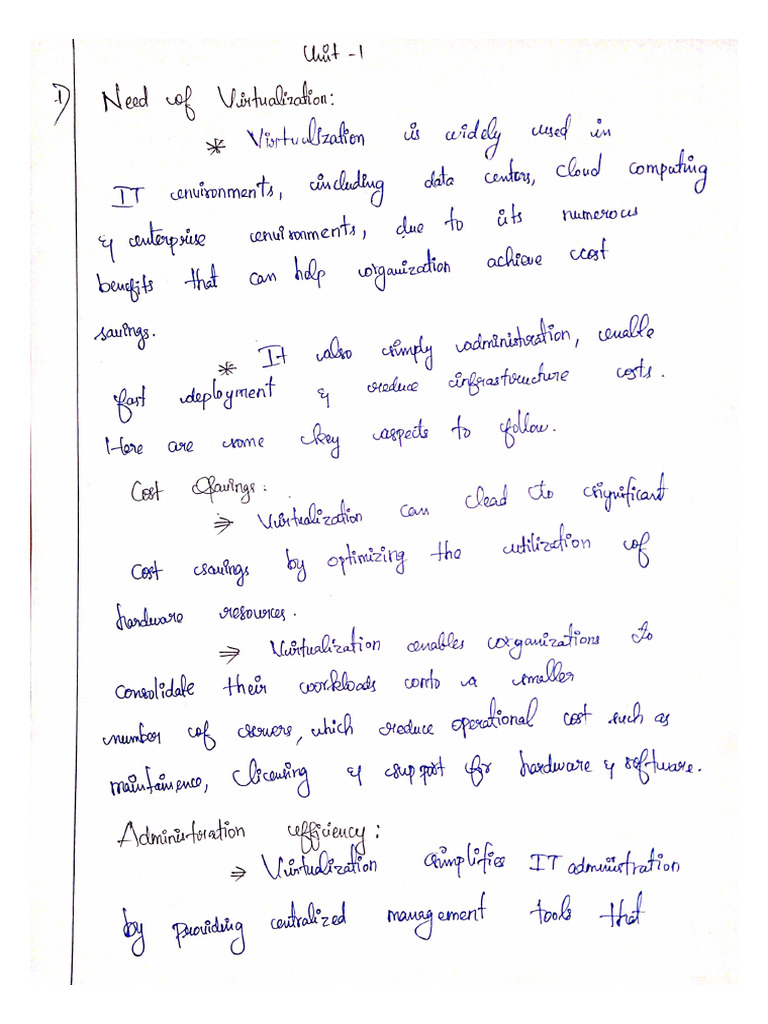 Unit - 1
1) Need of Virtualization:
* Virtulization is widely used in
IT environments, including data centers, cloud computing
& enterprise environments, due to its numerous
benefits that can help organization achieve cost
savings.
* It also simply administration, enable
fast deployment & reduce infrastructure costs.
Here are some key aspects to follow.
Cost Savings:
⇒ Virtualization can lead to significant
cost savings by optimizing the utilization of
hardware resources.
⇒ Virtualization enables organizations to
consolidate their workloads onto a smaller
number of servers, which reduce operational cost such as
maintainence, licensing & support for hardware & software.
Administration efficiency:
⇒ Virtualization simplifies IT administration
by providing centralized management tools that